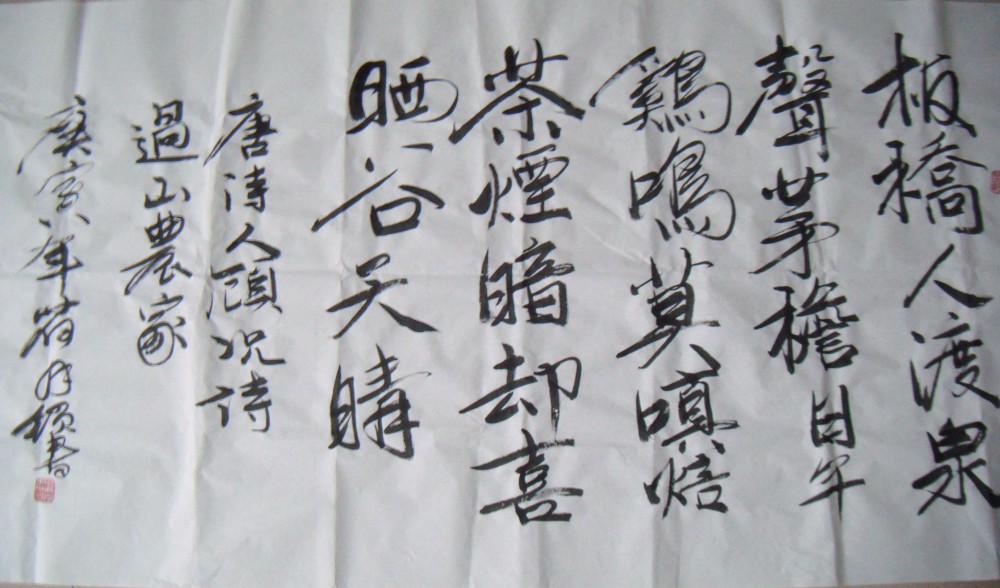 板橋人渡泉
聲茅檐日午
鷄鳴莫嗔焙
茶煙暗却喜
晒谷天晴
唐诗人顧况詩
過山農家
庚寅年荷月書